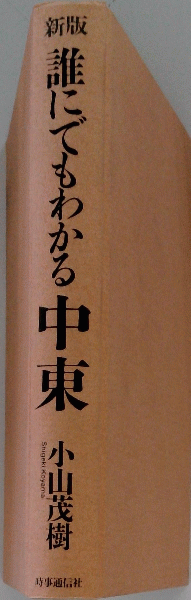 新版
誰にでもわかる
中東
小山茂樹
Shigeki Koyama
時事通信社